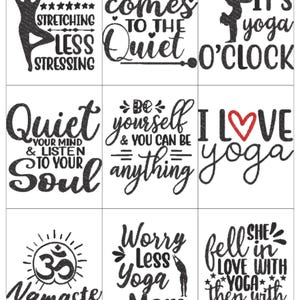 STRETCHING
LESS
STRESSING
comes
TO THE
Quiet
IT'S
yoga
O'CLOCK
Quiet
YOUR MIND
& LISTEN
TO YOUR
Soul
BE
yourself
& YOU CAN BE
anything
I LOVE
yoga
Namaste
Worry
Less
Yoga
More
SHE
fell in
LOVE WITH
YOGA
then with